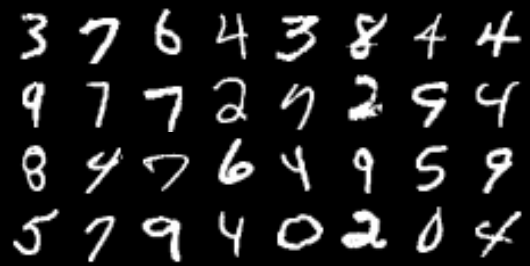 3 7 6 4 3 8 4 4
9 7 7 2 7 2 9 4
8 4 7 6 4 9 5 9
5 7 9 4 0 2 0 4